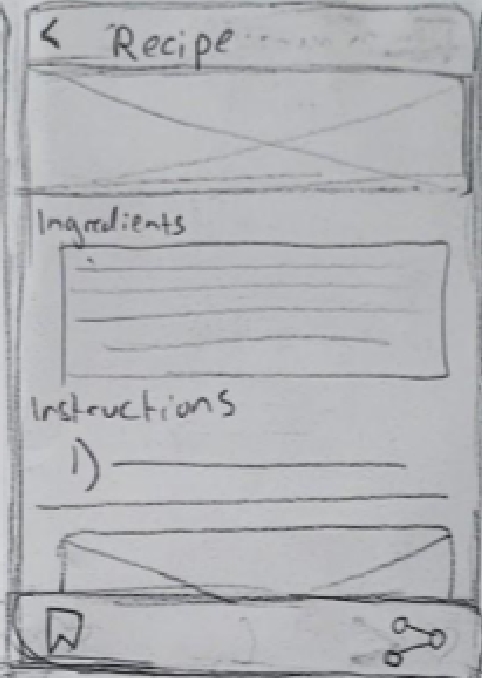 Recipe
Ingredients
Instructions
1)